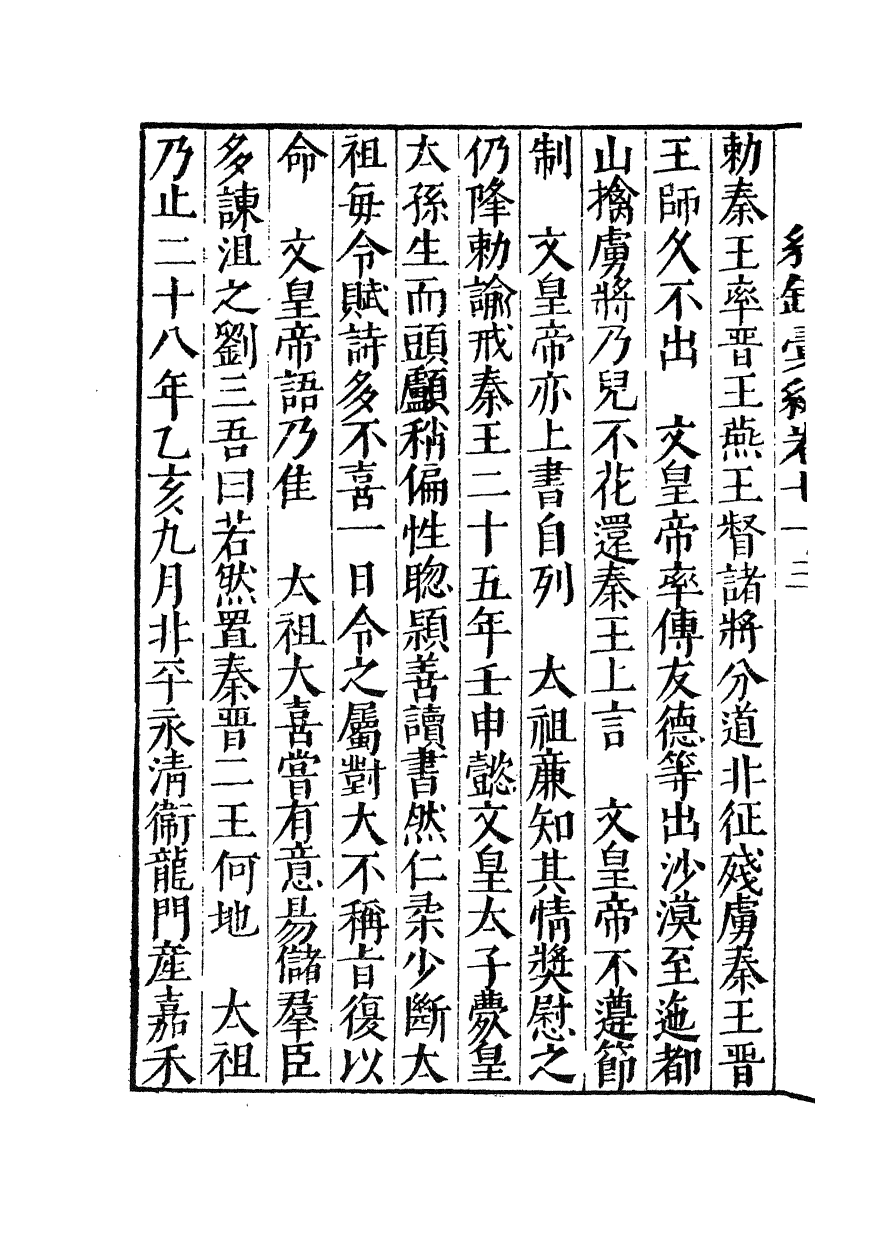 勅秦王率晋王燕王督諸將分道非征殘虜秦王晋
王師久不出　文皇帝率傳友德等出沙漠至迤都
山擒虜將乃兒不花還秦王上言　文皇帝不遵節
制　文皇帝亦上書自列　太祖廉知其情奬慰之
仍降勅諭戒秦王二十五年壬申懿文皇太子薨皇
太孫生而頭顱稍偏性聰穎善讀書然仁柔少斷太
祖每令賦詩多不喜一日令之屬對大不稱旨復以
命　文皇帝語乃佳　太祖大喜嘗有意易儲羣臣
多諫沮之劉三吾曰若然置秦晋二王何地　太祖
乃止二十八年乙亥九月非平永清衛龍門産嘉禾